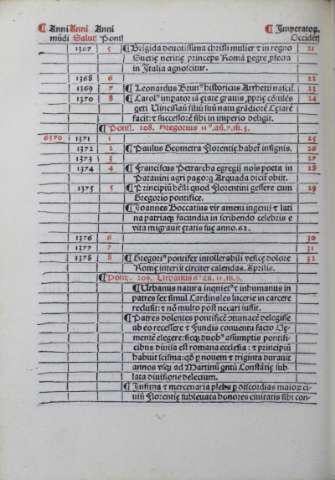 Anni Anni Anni Imperatoꝝ
mũdi Salut Põti Occidẽti
1367 5 Brigida deuotissima christi mulier ⁊ in regno 21
Suetię neritię princeps Romã pegre ꝓfecta
in Italia agnoscitur.
1368 6 22
1369 7 Leonardus Brunꝰ historicus Arrheti nascit̃ 23
1370 8 Carolꝰ impator iã ętate grauis 24
facit: ⁊ successorẽ sibi in imperio deligit.
Pont. 208. Gregorius 11ꝰ añ.7.m.5.
6570 1371 1 25
1372 2 Paulus Geometra Florentię habet̃ insignis. 26
1373 3 27
1374 4 Franciscus Petrarcha egregiꝰ nois poeta in 28
Patauini agri pago Arquada dicto obijt.
1375 5 Principiũ belli quod Florentini gessere cum 29
Gregorio pontifice.
Joannes Boccatius vir ameni ingenij ⁊ lati
na patriaqꝫ facundia in scribendo celebris e
vita migrauit ętatis suę anno.62.
1376 6 30
1377 7 31
1378 8 Gregoriꝰ pontifex intollerabili vesicę dolore 32
Romę interijt circiter calendas Aprilis.
Pont. 209. Urbanus
Urbanus natura inquiet⁹ ⁊ inhumanus in
patres sex simul Cardinales lucerię in carcere
reclusit: ⁊ nõ multo post necari iussit.
Patres dolentes pontificẽ
ab eo recessere ⁊ Fundis conuentu facto Cle
mentẽ elegere: sicqꝫ duobꝰ assumptis pontifi
cibus diuisa est romana ecclesia: ⁊ principiũ
habuit scisma: qđ ꝑ nouem ⁊ triginta durauit
annos vsqꝫ ad Martinũ qntũ Constãtię sub
lata diuisione delectum.
Infima ⁊ mercenaria plebs ꝓ discordias maioꝝ ci
uiũ Florentię subleuata honores ciuitatis sibi con